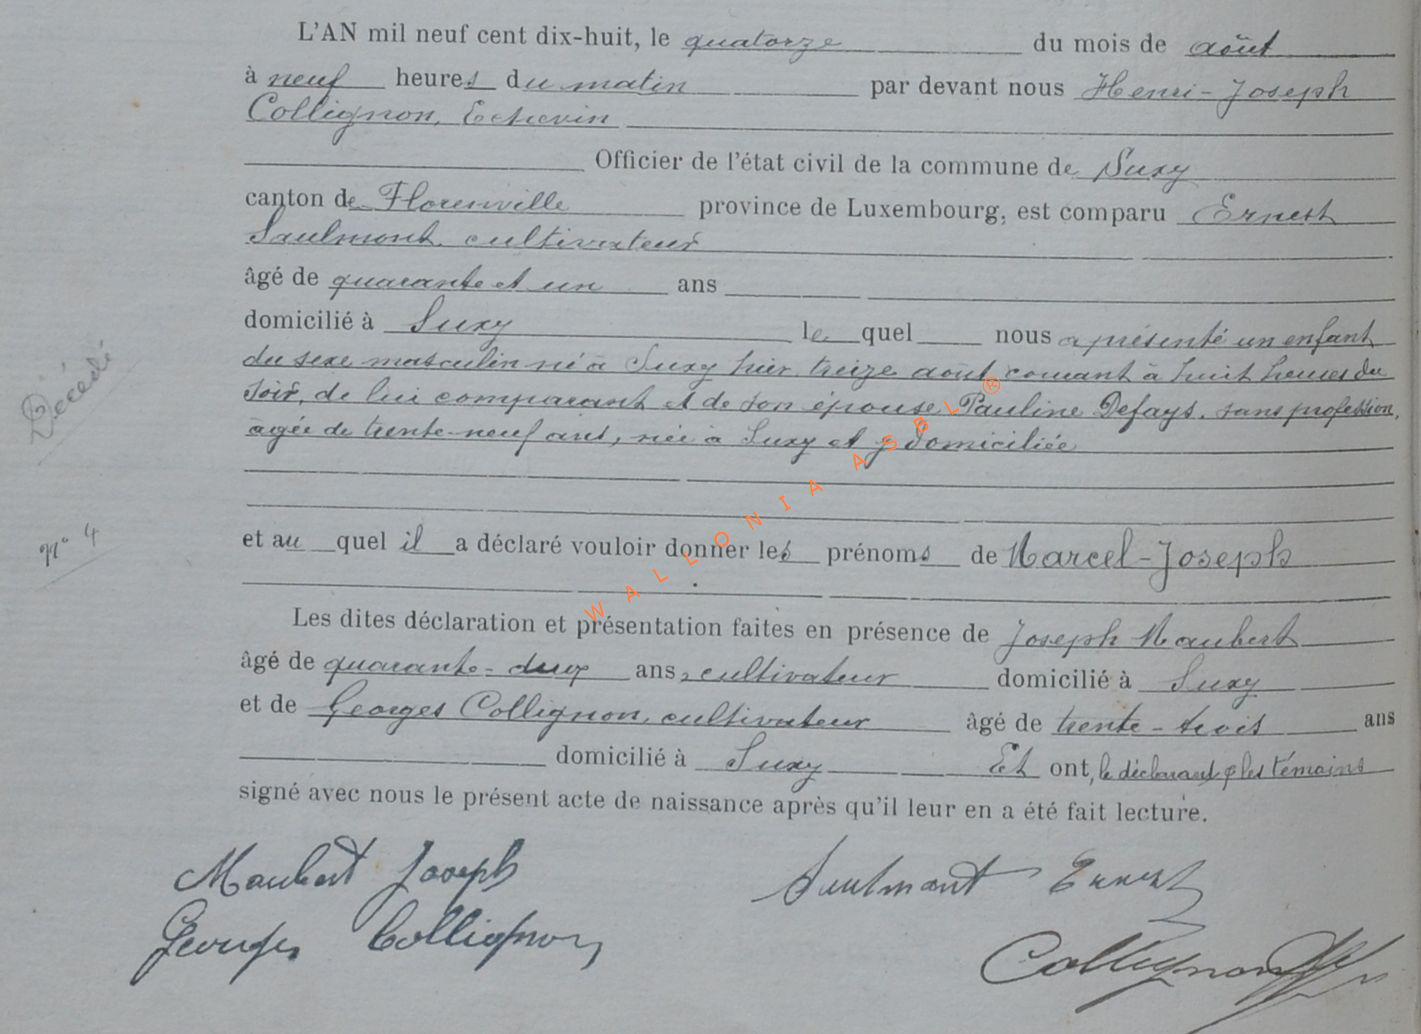 L'AN mil neuf cent dix-huit, le quatorze du mois de août
à neuf heures du matin par devant nous Henri-Joseph
Collignon, Echevin
Officier de l'état civil de la commune de Suxy
canton de Florenville province de Luxembourg, est comparu Ernest
Saulmont, cultivateur
âgé de quarante et un ans
domicilié à Suxy le quel nous a présenté un enfant
du sexe masculin né à Suxy hier treize août courant à huit heures du
soir, de lui comparant et de son épouse Pauline Defays, sans profession,
âgée de trente-neuf ans, née à Suxy et y domiciliée
Décédé
N° 4
et au quel il a déclaré vouloir donner les prénoms de Marcel-Joseph
Les dites déclaration et présentation faites en présence de Joseph Maubert
âgé de quarante-deux ans, cultivateur domicilié à Suxy
et de Georges Collignon, cultivateur âgé de trente-trois ans
domicilié à Suxy Et ont, le déclarant & les témoins
signé avec nous le présent acte de naissance après qu'il leur en a été fait lecture.
Maubert Joseph Saulmont Ernest
Georges Collignon
Collignon
WALLONIA ASBL ®